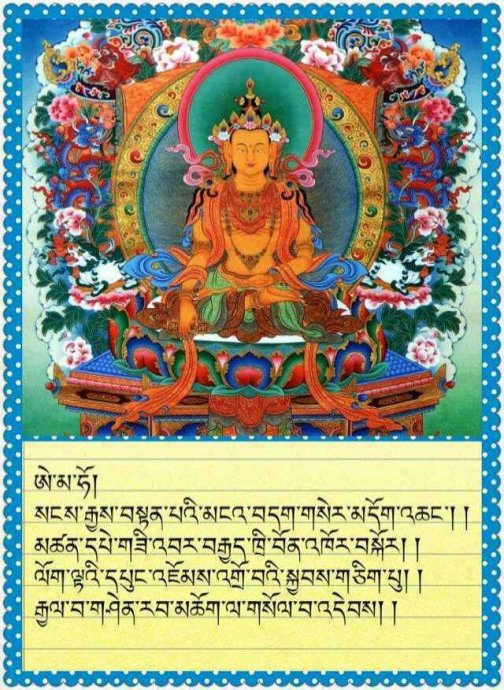 ཨེ་མ་ཧོ།
སངས་རྒྱས་བསྟན་པའི་མངའ་བདག་གསེར་མདོག་འཆང་། །
མཚན་དཔེ་གཟི་འབར་བརྒྱད་ཁྲི་བོན་འཁོར་བསྐོར། །
ལོག་ལྟའི་དཔུང་འཇོམས་འགྲོ་བའི་སྐྱབས་གཅིག་པུ། །
རྒྱལ་བ་གཤེན་རབ་མཆོག་ལ་གསོལ་བ་འདེབས། །